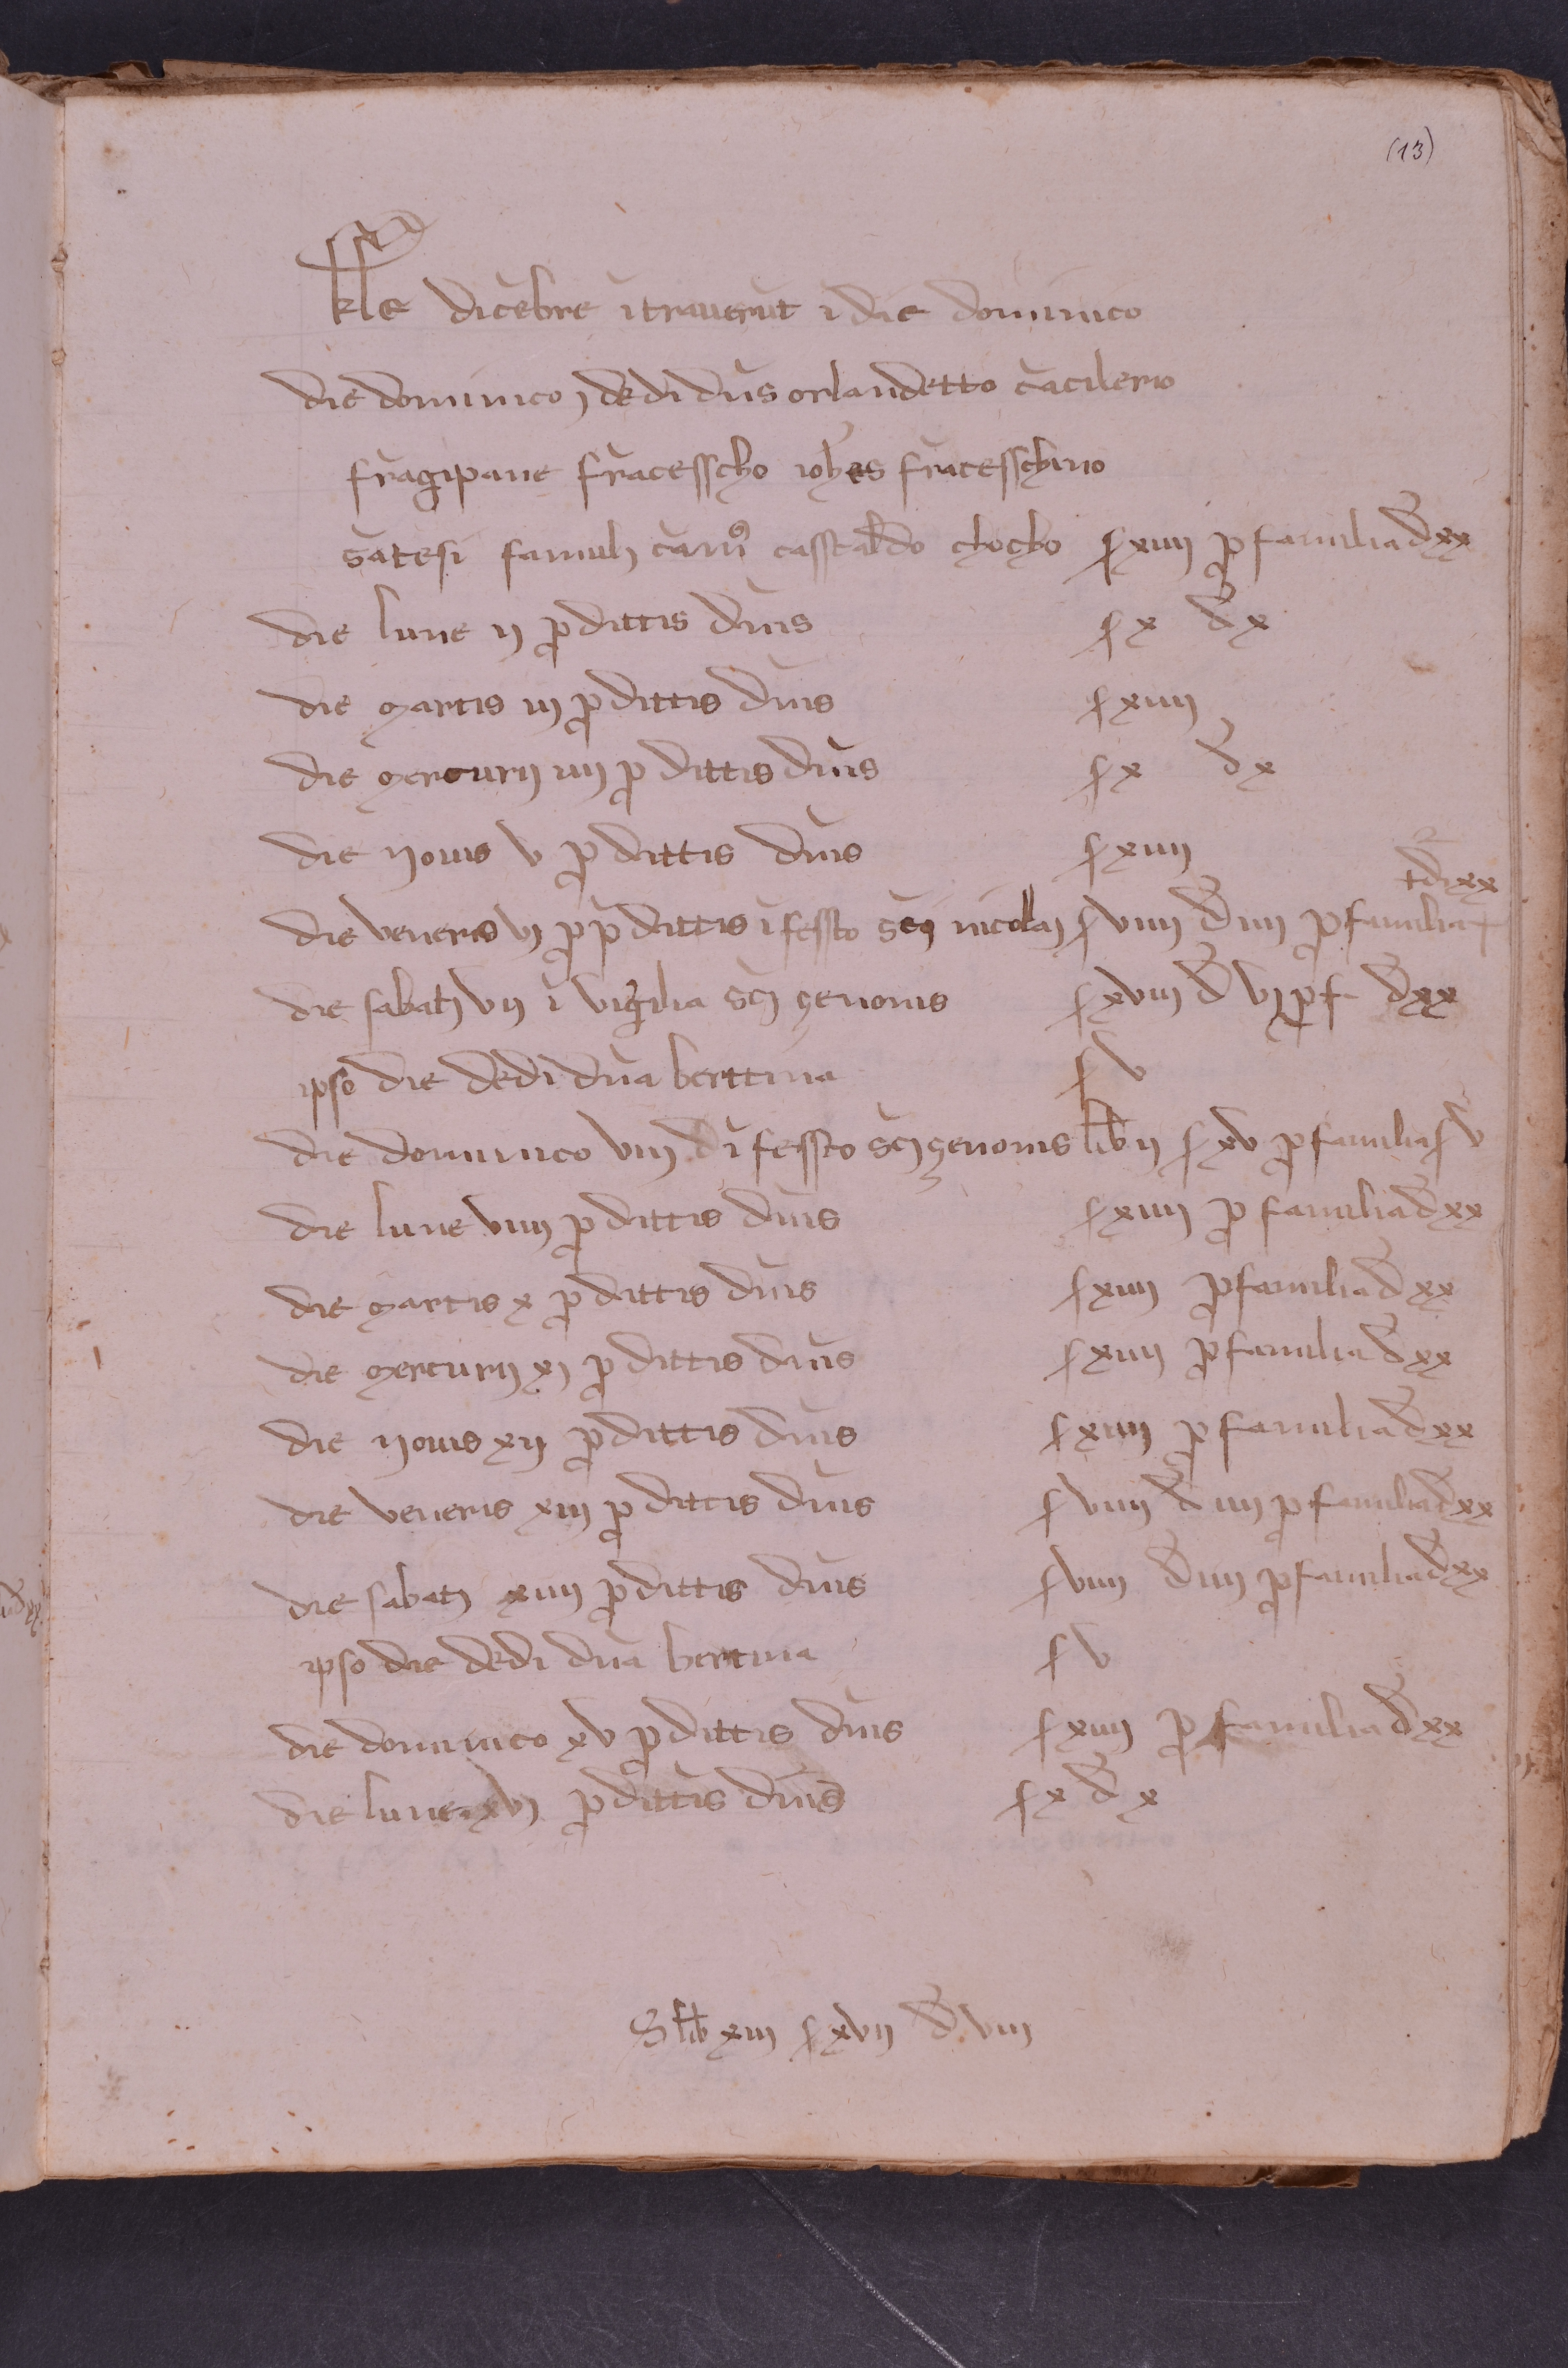 (13)
kle dicebre itraverut i die dominico
die dominico j dedi dnis orlandetto cacilerio
fragipane fracesscho iohes fracesschino
satesi famulj cam9 casstaldo chocho s xiiij p familia d xx
die lune ij p dittis dnis s x d x
die martis iij p dittis dnis s xiiij
die mercurij iiij p dittis dnis s x d x
die yovis v p dittis dnis s xiiij
t d xx
die veneris vj p p dittis i fessto sci nicolaj s viiij d iiij p familia +
die sabatj vij i vigilia scj çenonis s xviij d vj p f d xx
ipso die dedi dna berttina s v
die dominico viij d i fessto scj çenonis lib ij s xv p familia s v
die lune viiij p dittis dnis s xiiij p familia d xx
die martis x p dittis dnis s xiiij p familia d xx
die mercurij xj p dittis dnis s xiiij p familia d xx
die yovis xij p dittis dnis s xiiij p familia d xx
die veneris xiij p dittis dnis s viiij d iiij p familia d xx
die sabatj xiiij p dittis dnis s viiij d iiij p familia d xx
ipso die dedi dna bertina s v
die dominico xv p dittis dnis s xiiij p familia d xx
die lune xvj p dittis dnis s x d x
S lib xiij s xvij d viij